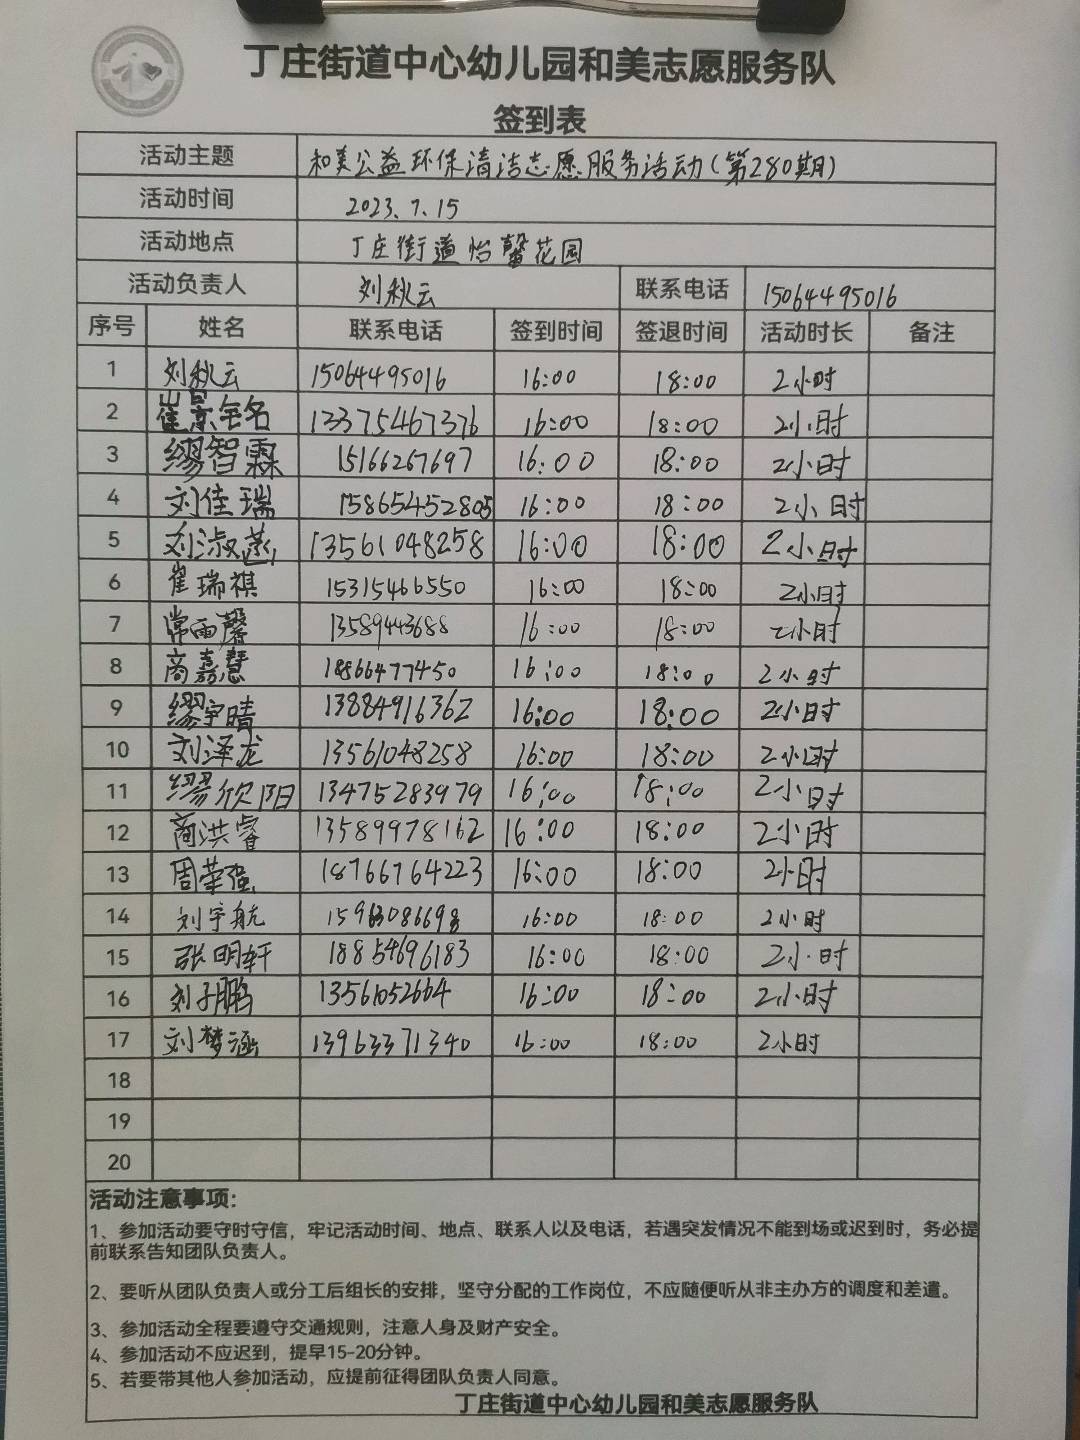 丁庄街道中心幼儿园和美志愿服务队
签到表
活动主题 和美公益环保清洁志愿服务活动(第280期)
活动时间 2023.7.15
活动地点 丁庄街道怡馨花园
活动负责人 刘秋云 联系电话 15064495016
序号 姓名 联系电话 签到时间 签退时间 活动时长 备注
1 刘秋云 15064495016 16:00 18:00 2小时
2 崔景铭 13375467376 16:00 18:00 2小时
3 缪智霖 15166267697 16:00 18:00 2小时
4 刘佳瑞 15865452805 16:00 18:00 2小时
5 刘淑 13561048258 16:00 18:00 2小时
6 崔瑞祺 15315466550 16:00 18:00 2小时
7 常雨馨 13589443688 16:00 18:00 2小时
8 商嘉慧 18866477450 16:00 18:00 2小时
9 缪宇晴 13884916362 16:00 18:00 2小时
10 刘泽龙 13561048258 16:00 18:00 2小时
11 缪欣阳 13475283979 16:00 18:00 2小时
12 商洪睿 13589978162 16:00 18:00 2小时
13 周荣强 18766764223 16:00 18:00 2小时
14 刘宇航 16:00 18:00 2小时
15 张明轩 18854696183 16:00 18:00 2小时
16 刘子鹏 13561052664 16:00 18:00 2小时
17 刘梦涵 13963371340 16:00 18:00 2小时
18
19
20
活动注意事项:
1、参加活动要守时守信，牢记活动时间、地点、联系人以及电话，若遇突发情况不能到场或迟到时，务必提
前联系告知团队负责人。
2、要听从团队负责人或分工后组长的安排，坚守分配的工作岗位，不应随便听从非主办方的调度和差遣。
3、参加活动全程要遵守交通规则，注意人身及财产安全。
4、参加活动不应迟到，提早15-20分钟。
5、若要带其他人参加活动，应提前征得团队负责人同意。
丁庄街道中心幼儿园和美志愿服务队